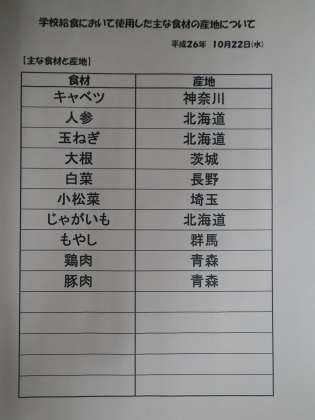 学校給食において使用した主な食材の産地について
平成26年 10月22日(水)
[主な食材と産地]
食材 産地
キャベツ 神奈川
人参 北海道
玉ねぎ 北海道
大根 茨城
白菜 長野
小松菜 埼玉
じゃがいも 北海道
もやし 群馬
鶏肉 青森
豚肉 青森